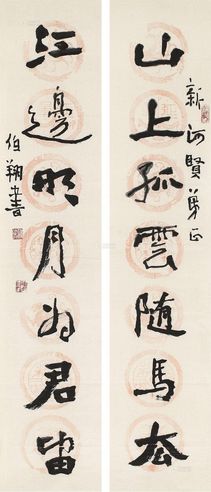 新河賢弟正
山上孤雲隨馬去
江邊明月為君留
伯翔書